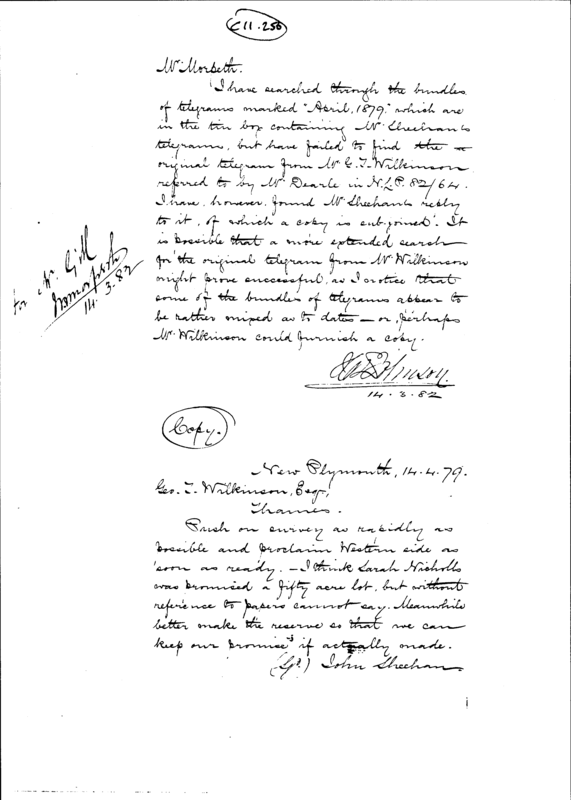 C11.256
Mr. Morpeth.
I have searched through the bundles
of telegrams marked "April, 1879," which are
in the tin box containing Mr. Sheehan's
telegrams, but have failed to find the
original telegram from Mr. G. T. Wilkinson
referred to by Mr. Dearle in N.L.P. 82/64.
I have, however, found Mr. Sheehan's reply
to it, of which a copy is subjoined. It
is possible that a more extended search
for the original telegram from Mr. Wilkinson
might prove successful, as I notice that
some of the bundles of telegrams appear to
be rather mixed as to dates — or, perhaps
Mr. Wilkinson could furnish a copy.
14.3.82
for Mr. Gill
W Morpeth
14.3.82
Copy.
New Plymouth, 14.4.79.
Geo. T. Wilkinson, Esq.,
Thames.
Push on survey as rapidly as
possible and proclaim Western side as
soon as ready. — I think Sarah Nicholls
was promised a fifty acre lot, but without
reference to papers cannot say. Meanwhile
better make the reserve so that we can
keep our promise if actually made.
(Sgd.) John Sheehan